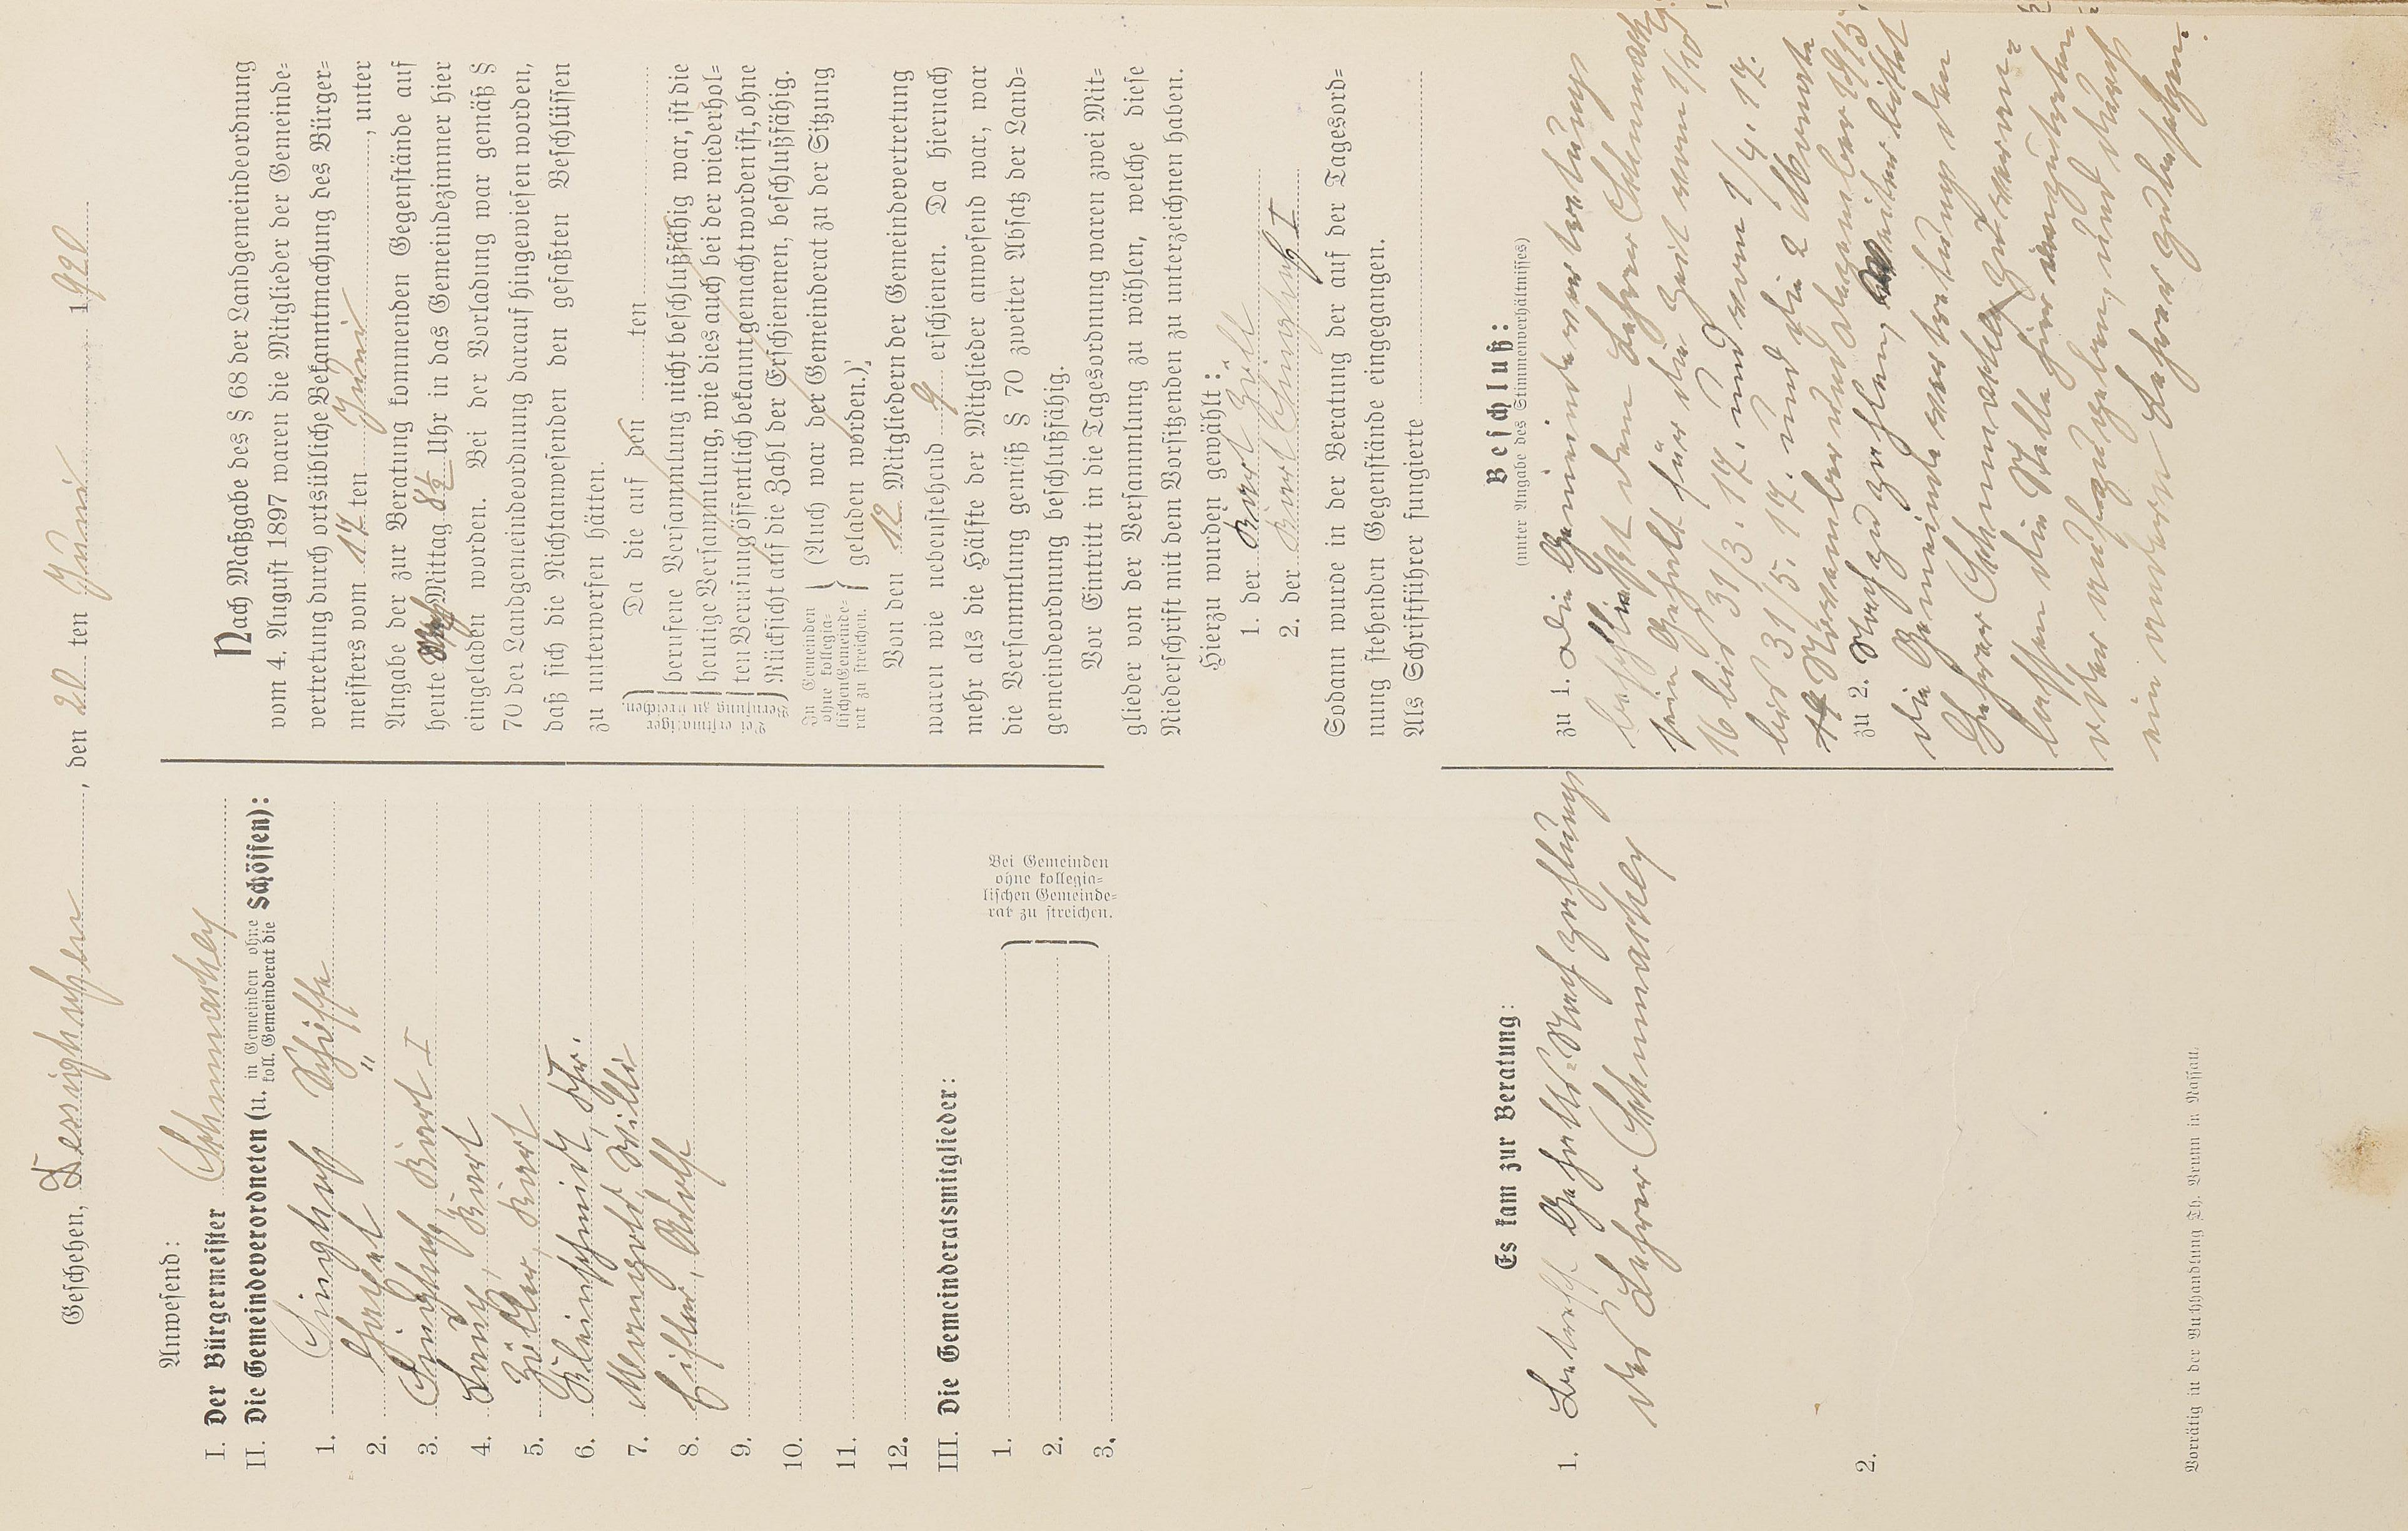 Geschehen, Dessighofen, den 20 ten Juni 1920
Anwesend:
I. Der Bürgermeister
II. Die Gemeindeverordneten (u. in Gemeinden ohne koll. Gemeinderat die Schöffen):
1. Singhof Schöffe
2. "
3. Singhof, Karl I
4. Karl
5. Zöller, Karl
6. Kleinschmidt, Chr.
7. Willi
8. Adolf
9.
10.
11.
12.
III. Die Gemeinderatsmitglieder:
1.
2.
3.
Bei Gemeinden
ohne kollegia-
lischen Gemeinde-
rat zu streichen.
Nach Maßgabe des § 68 der Landgemeindeordnung
vom 4. August 1897 waren die Mitglieder der Gemeinde-
vertretung durch ortsübliche Bekanntmachung des Bürger-
meisters vom 17 ten Juni, unter
Angabe der zur Beratung kommenden Gegenstände auf
heute Nach Mittag 8½ Uhr in das Gemeindezimmer hier
eingeladen worden. Bei der Vorladung war gemäß §
70 der Landgemeindeordnung darauf hingewiesen worden,
daß sich die Nichtanwesenden den gefaßten Beschlüssen
zu unterwerfen hätten.
Bei erstmaliger
Berufung zu streichen.
Da die auf den ten
berufene Versammlung nicht beschlußfähig war, ist die
heutige Versammlung, wie dies auch bei der wiederhol-
ten Berufung öffentlich bekannt gemacht worden ist, ohne
Rücksicht auf die Zahl der Erschienenen, beschlußfähig.
In Gemeinden
ohne kollegia-
lischen Gemeinde-
rat zu streichen.
(Auch war der Gemeinderat zu der Sitzung
geladen worden.)
Von den 12 Mitgliedern der Gemeindevertretung
waren wie nebenstehend 9 erschienen. Da hiernach
mehr als die Hälfte der Mitglieder anwesend war, war
die Versammlung gemäß § 70 zweiter Absatz der Land-
gemeindeordnung beschlußfähig.
Vor Eintritt in die Tagesordnung waren zwei Mit-
glieder von der Versammlung zu wählen, welche diese
Niederschrift mit dem Vorsitzenden zu unterzeichnen haben.
Hierzu wurden gewählt:
1. der Karl Zöll
2. der Karl Singhof I
Sodann wurde in der Beratung der auf der Tagesord-
nung stehenden Gegenstände eingegangen.
Als Schriftführer fungierte
Es kam zur Beratung:
1. Betreff Gehalts-Nachzahlung
des Lehrer
2.
Beschluß:
(unter Angabe des Stimmenverhältnisses)
zu 1. Die Gemeindevertretung
beschließt dem Lehrer
sein Gehalt für die Zeit vom 1/10
16 bis 31/3. 17. und vom 1/4. 17.
bis 31/5. 17. und die 2 Monate
November und Dezember 1915
zu 2. nachzuzahlen, weiter bittet
die Gemeindevertretung den
Lehrer zu veran-
lassen die Stelle hier anzutreten
oder aufzugeben, und durch
ein anderen Lehrer zu besetzen.
Vorrätig in der Buchhandlung Th. Brunn in Nassau.